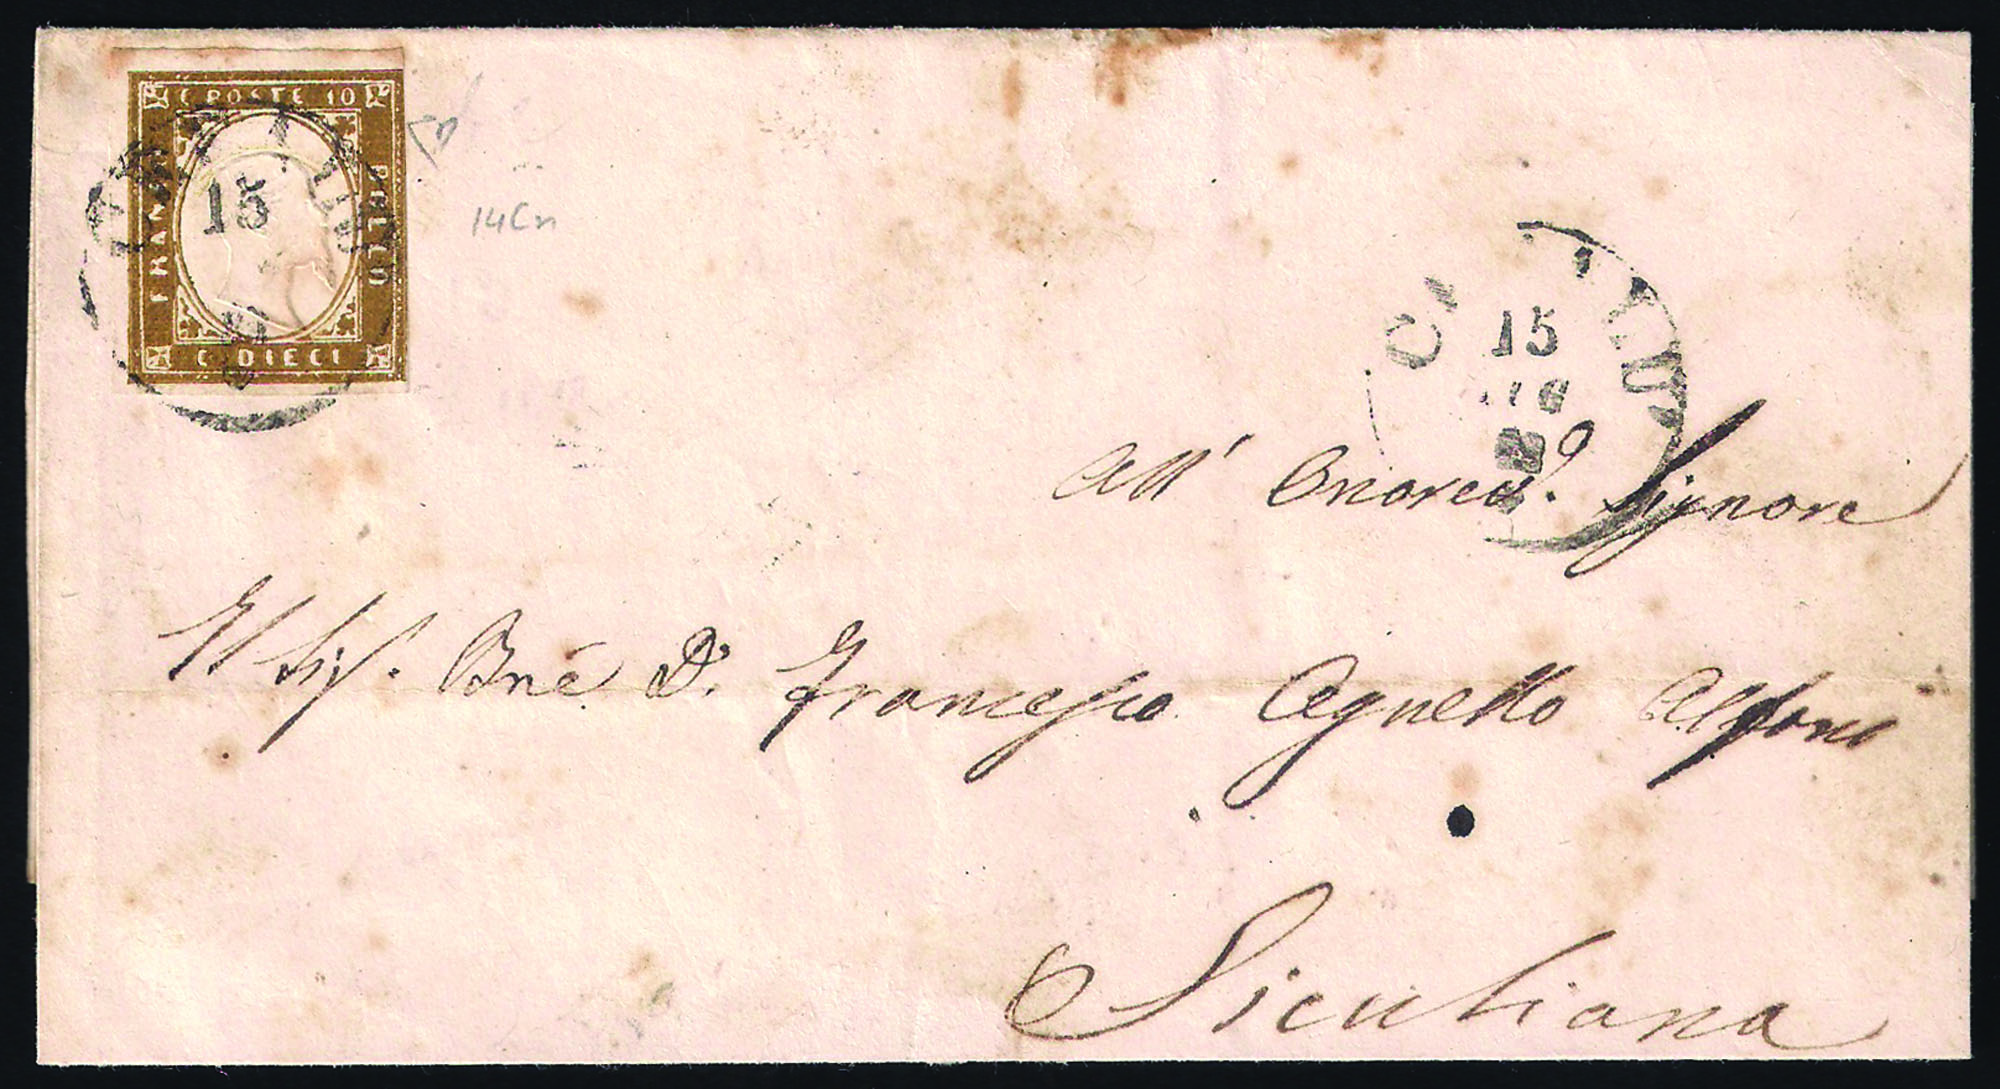 C POSTE 10
FRANCO
BOLLO
C DIECI
15
14Cn
15
All' Onorev.º Signore
Il Sig.r Bne D. Francesco Agnello Alfani
Siculiana